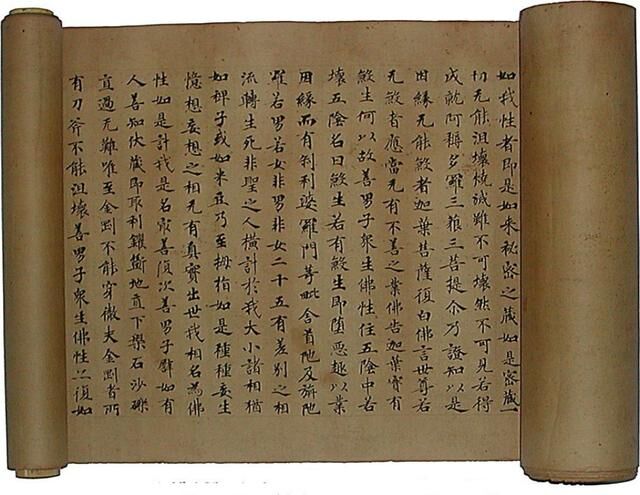 如我性者即是如来秘密之藏如是密藏一
切无能沮壞燒滅雖不可壞然不可見若得
成就阿耨多羅三藐三菩提尒乃證知以是
因緣无能煞者迦葉菩薩復白佛言世尊若
无煞者應當无有不善之業佛告迦葉實有
煞生何以故善男子衆生佛性住五陰中若
壞五陰名曰煞生若有煞生即墮惡趣以業
因緣而有刹利婆羅門等毗舍首陁及旃陁
羅若男若女非男非女二十五有差別之相
流轉生死非聖之人橫計於我大小諸相猶
如稗子或如米豆乃至拇指如是種種妄生
憶想妄想之相无有真實出世我相名為佛
性如是計我是名冣善復次善男子譬如有
人善知伏藏即取利钁斸地直下磐石沙礫
直過无難唯至金剛不能穿徹夫金剛者所
有刀斧不能沮壞善男子衆生佛性亦復如